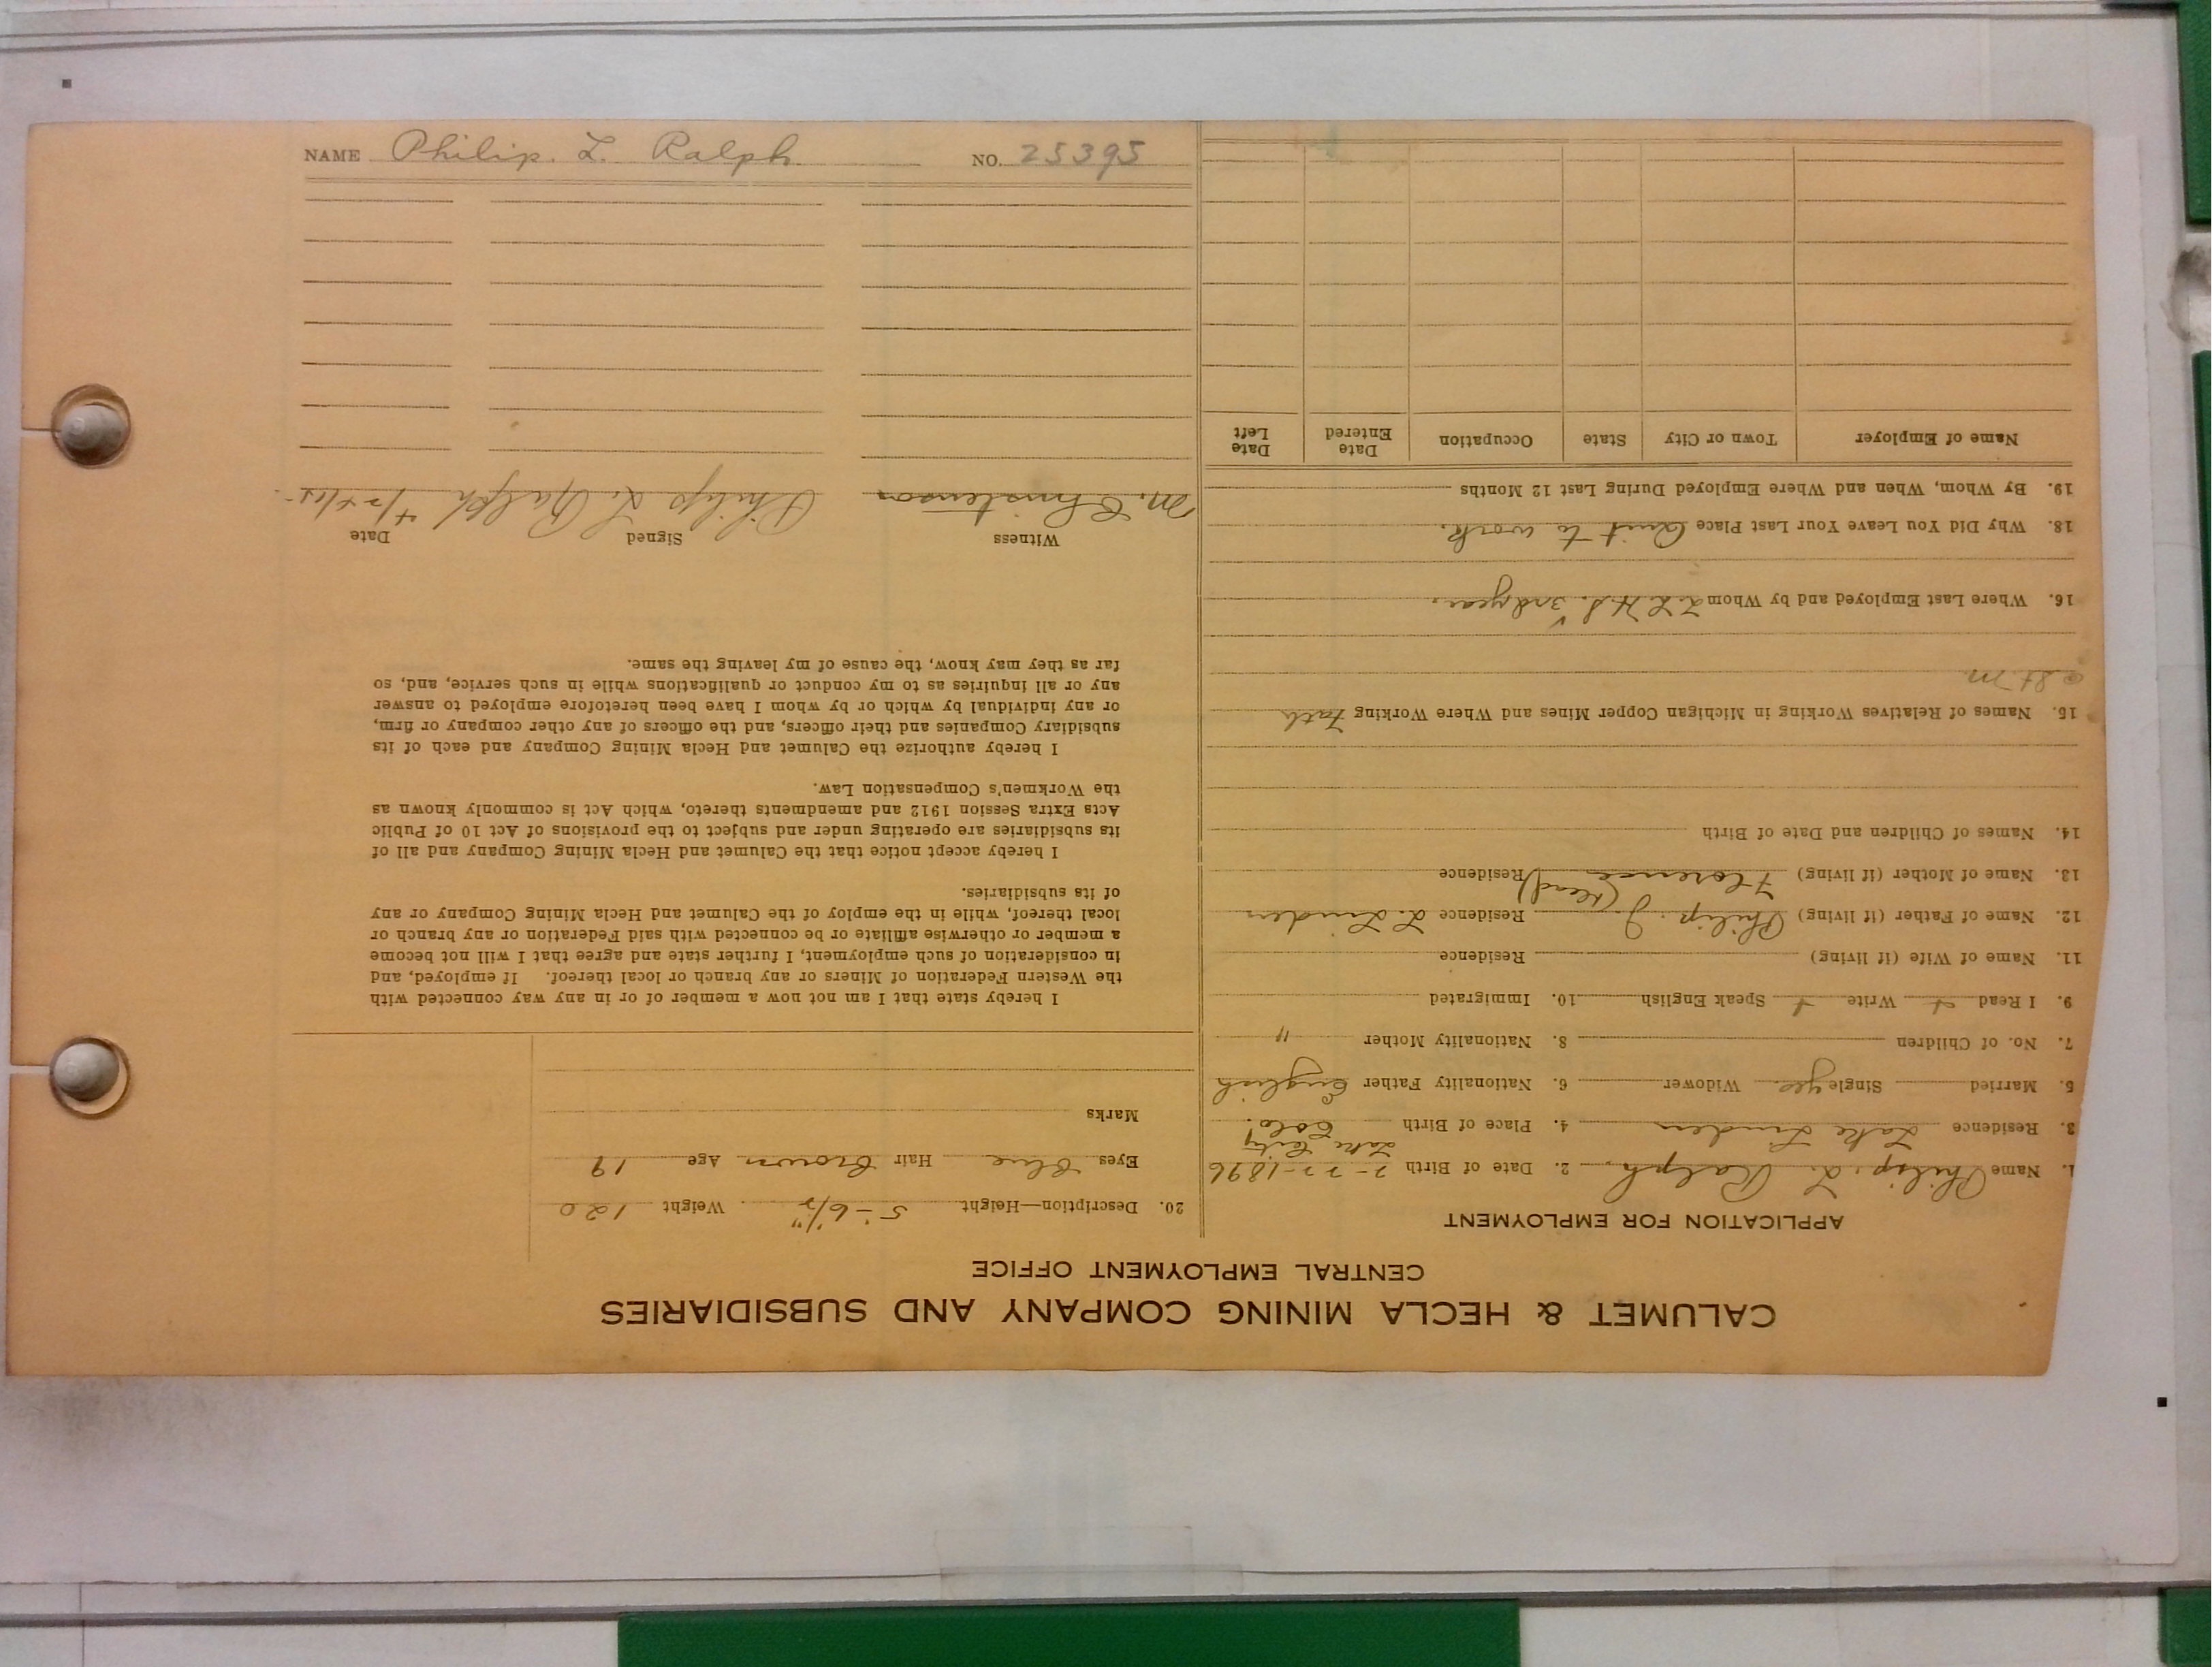 NAME Philip. L. Ralph NO. 25395
CALUMET & HECLA MINING COMPANY AND SUBSIDIARIES
CENTRAL EMPLOYMENT OFFICE
APPLICATION FOR EMPLOYMENT
1. Name Philip. L. Ralph. 2. Date of Birth 2-22-1896
3. Residence Lake Linden 4. Place of Birth Lake City Colo.
5. Married Single yes Widower 6. Nationality Father English
7. No. of Children 8. Nationality Mother "
9. I Read + Write + Speak English 10. Immigrated
11. Name of Wife (if living) Residence
12. Name of Father (if living) Philip. J. Residence L. Linden
13. Name of Mother (if living) Florence (Dead) Residence
14. Names of Children and Date of Birth
15. Names of Relatives Working in Michigan Copper Mines and Where Working Fath
@ St. M
16. Where Last Employed and by Whom L. L. H. S. 3rd year.
18. Why Did You Leave Your Last Place Quit to work.
19. By Whom, When and Where Employed During Last 12 Months
Name of Employer Town or City State Occupation Date Entered Date Left
20. Description—Height 5'-6½" Weight 120
Eyes Blue Hair Brown Age 19
Marks
I hereby state that I am not now a member of or in any way connected with
the Western Federation of Miners or any branch or local thereof. If employed, and
in consideration of such employment, I further state and agree that I will not become
a member or otherwise affiliate or be connected with said Federation or any branch or
local thereof, while in the employ of the Calumet and Hecla Mining Company or any
of its subsidiaries.
I hereby accept notice that the Calumet and Hecla Mining Company and all of
its subsidiaries are operating under and subject to the provisions of Act 10 of Public
Acts Extra Session 1912 and amendments thereto, which Act is commonly known as
the Workmen's Compensation Law.
I hereby authorize the Calumet and Hecla Mining Company and each of its
subsidiary Companies and their officers, and the officers of any other company or firm,
or any individual by which or by whom I have been heretofore employed to answer
any or all inquiries as to my conduct or qualifications while in such service, and, so
far as they may know, the cause of my leaving the same.
Witness Signed Date
M. Christenson Philip L. Ralph